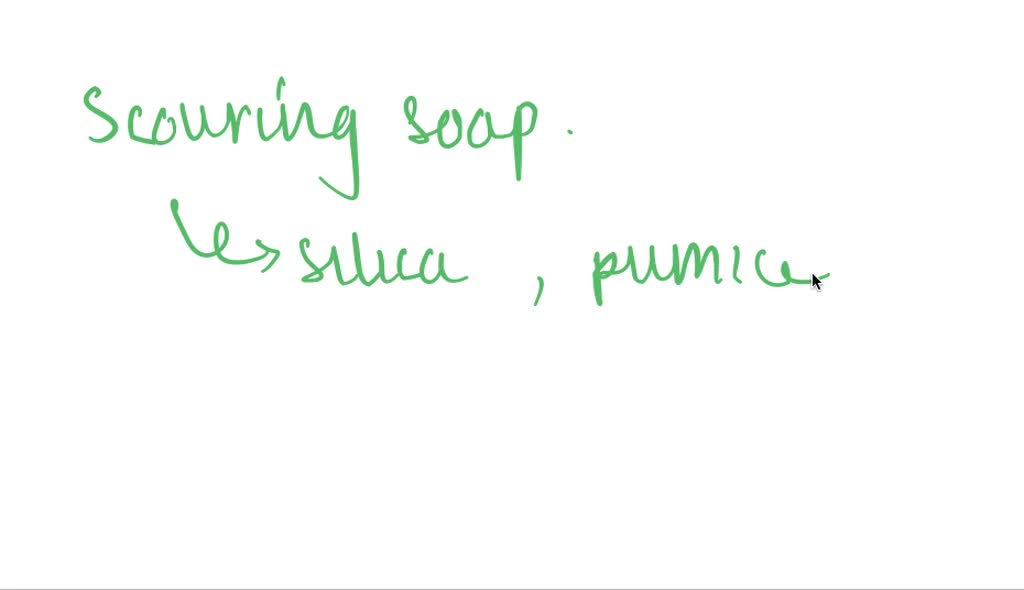 Scouring soap.
silica, pumice